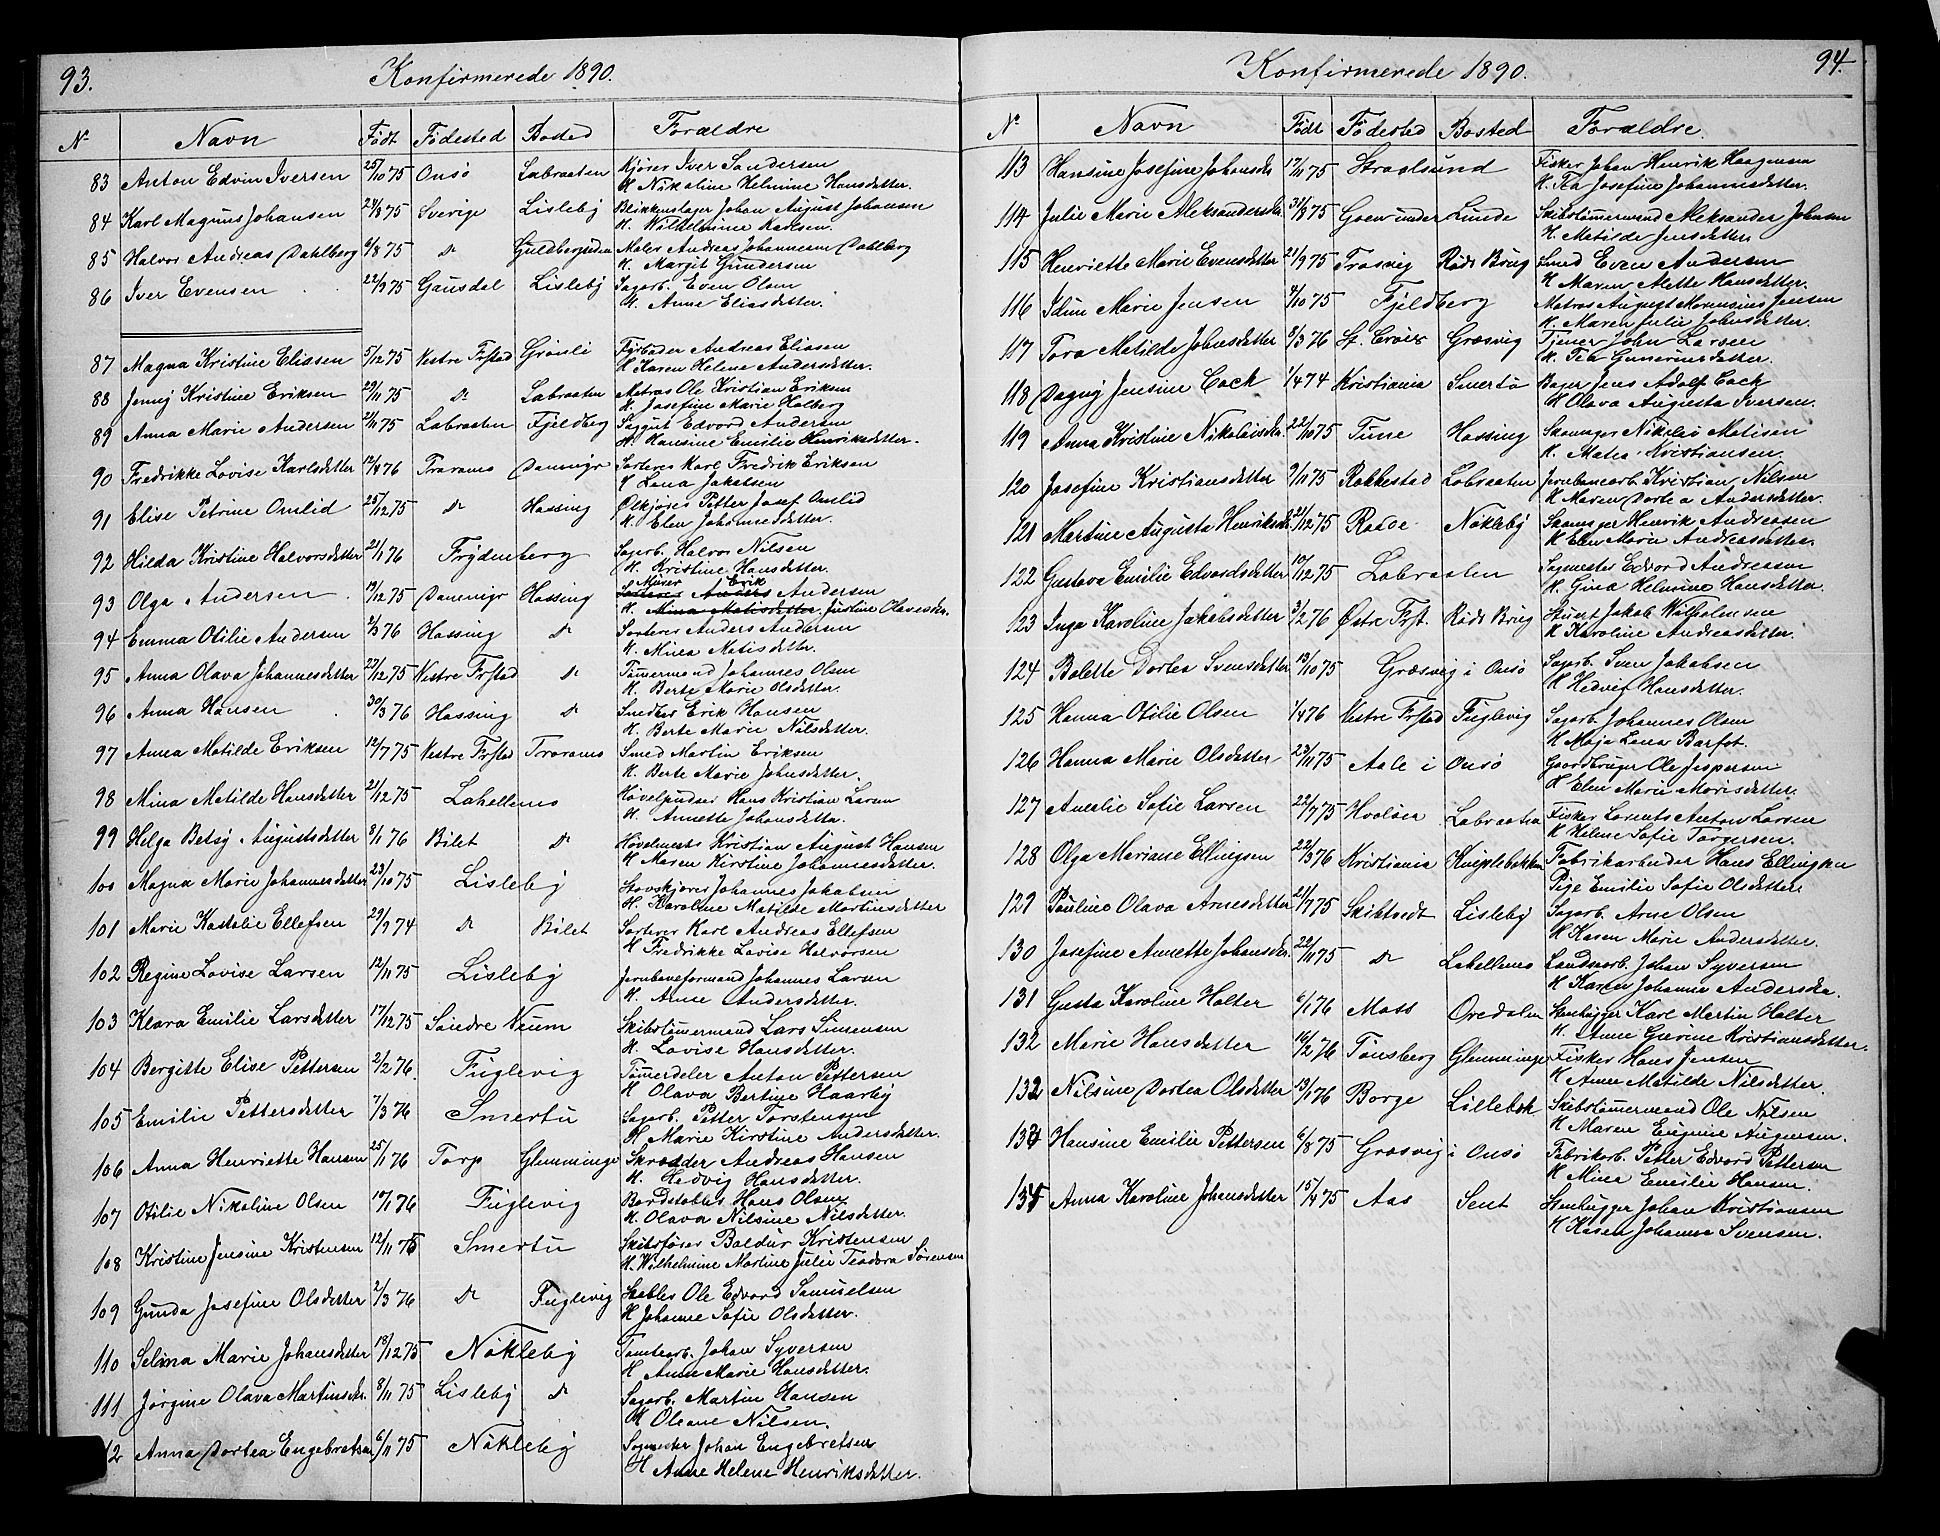 93.
Konfirmerede 1890.
No Navn Født Fødested Bosted Forældre
83 Anton Edvin Iversen 25/10 75 Onsø Labraaten Kjører Iver Sandersen
H. Nikoline Helmine Hansdetter.
84 Karl Magnus Johansen 24/8 75 Sverige Lisleby Blikkenslager Johan August Johansen
H. Wilhelmine Karlsen.
85 Halvor Andreas Dahlberg 6/8 75 Do Maler Andreas Johannesen Dahlberg
H. Margit Gundersen
86 Iver Evensen 22/9 75 Gausdal Lisleby Sagarb. Even Olsen
H. Anne Eliasdetter.
87 Magna Kristine Eliasen 5/12 75 Vestre Frstad Grønli Fyrbøder Andreas Eliasen
H Karen Helene Andersdetter.
88 Jenny Kristine Eriksen 29/11 75 Do Labraaten Matros Ole Kristian Eriksen
H. Josefine Marie Holberg
89 Anna Marie Andersen 2/11 75 Labraaten Fjeldberg Edvard Andersen
H. Hansine Emilie Henriksdetter.
90 Fredrikke Lovise Karlsdetter 12/4 76 Traraas Dammyr Sorterer Karl Fredrik Eriksen
H Lena Jakobsen
91 Elise Petrine Omlid 25/12 75 Do Hassing Ølkjører Petter Josef Omlid
H. Elen Johannesdetter.
92 Hilda Kristine Halvorsdetter 21/1 76 Frydenberg Sagarb. Halvor Nilsen
H. Kristine Hansdetter.
93 Olga Andersen 19/12 75 Dammyr Hassing Murer Erik Sorterer Anders Andersen
H. Mina Matisdetter. Justine Olavesdr.
94 Emma Otilie Andersen 2/3 76 Hassing Do Sorterer Anders Andersen
H. Mina Matisdetter.
95 Anna Olava Johannesdetter 23/12 75 Vestre Frstad Do Tømermand Johannes Olsen
H. Berte Marie Olsdetter.
96 Anna Hansen 30/3 76 Hassing Do Erik Hansen
H. Berte Marie Nilsdetter.
97 Anna Matilde Eriksen 12/7 75 Vestre Frstad Traraas Smed Martin Eriksen
H. Berte Marie Johnsdetter.
98 Mina Matilde Hansdetter 21/12 75 Lahellens Høvelpudser Hans Kristian Larsen
H. Annette Johansdetter.
99 Helga Betsy Augustsdetter 8/1 76 Bilet Do Høvelmester Kristian August Hansen
H Maren Kirstine Johannesdetter.
100 Magna Marie Johannesdetter 23/10 75 Lisleby Stavskjører Johannes Jakobsen
H. Karoline Matilde Martinsdetter
101 Marie Ellefsen 29/9 74 Do Bilet Sorterer Karl Andreas Ellefsen
H Fredrikke Lovise Halvorsen
102 Regine Lovise Larsen 12/11 75 Lisleby Jernbaneformand Johannes Larsen
H. Anne Andersdetter.
103 Klara Emilie Larsdetter 17/12 75 Søndre Neum Skibstømermand Lars Simensen
H. Lovise Hansdetter.
104 Bergitte Elise Pettersen 2/2 76. Fuglevig Tømerdeler Anton Pettersen
H Olava Bertine Haarby
105 Emilie Pettersdetter 7/3 76 Smertu Sagarb. Petter Torstensen
H Marie Kirstine Andersdetter.
106 Anna Henriette Hansen 25/1 76 Torp Glemminge Skrædder Andreas Hansen
H. Hedvig Hansdetter.
107 Otilie Nikoline Olsen 19/1 76 Fuglevig Bordstabler Hans Olsen
H. Olava Nilsine Nilsdetter.
108 Kristine Jensine Kristensen 12/11 75 Smertu Skibsfører Baldur Kristensen
H. Wilhelmine Martine Julie Teodora Sørensen
109 Gunda Josefine Olsdetter 2/3 76 Do Fuglevig Stabler Ole Edvard Samuelsen
H Johanne Sofie Olsdetter.
110 Selma Marie Johansdetter 18/12 75 Nøkleby Tomtearb. Johan Syversen
H Anne Marie Hansdetter.
111 Jørgine Olava Martinsdr. 8/11 75 Lisleby Do Sagarb. Martin Hansen
H Oleane Nilsen.
12 Anna Dortea Engebretsen 6/11 75 Nøkleby Sagmester Johan Engebretsen
H Anne Helene Henriksdetter.
94.
Konfirmerede 1890.
No Navn Født Fødested Bosted Forældre.
113 Hansine Josefine Johansdr 17/11 75 Straalsund Fisker Johan Henrik Haagensen
H. Tea Josefine Johannesdetter.
114 Julie Marie Aleksandersdr. 31/8 75 Goen under Lunde Skibstømermand Aleksander Johnsen
H. Matilde Jensdetter
115 Henriette Marie Evensdetter 21/9 75 Trosvig Røds Brug Smed Even Andersen
H Maren Alette Hansdetter.
116 Idun Marie Jensen 4/10 75 Fjeldberg Matros August Marensius Jensen
H. Maren Julie Johnsdetter.
117 Tora Matilde Johnsdetter 8/3 76 St. Croix Græsvig Tjener John Larsen
H. Tea Guneriusdetter.
118 Dagny Jensine Cock 1/4 74 Kristiania Smertu Bager Jens Adolf Cock
H Olava Augusta Iversen.
119 Anna Kristine Nikolaisdr. 22/10 75 Tune Hassing Skomager Nikolai Matisen
H. Matea Kristiansen.
120 Josefine Kristiansdetter 9/11 75 Rakkestad Labraaten Jernbanearb. Kristian Nilsen
H. Maren Dortea Andersdetter.
121 Martine Augusta Henriksdr 21/12 75 Raade Nøkleby Skomager Henrik Andreasen
H Elen Marie Andreasdetter.
122 Gustava Emilie Edvardsdetter 10/12 75 Labraaten Sagmester Edvard Andreasen
H. Gina Helmine Hansdetter.
123 Inga Karoline Jakobsdetter 3/2 76 Østre Frst. Røds Brug Stuert Jakob Wilhelmsen
H Karoline Andreasdetter.
124 Bolette Dortea Svensdetter 13/10 75 Græsvig i Onsø Sagarb. Sven Jakobsen
H Hedvig Hansdetter.
125 Hanna Otilie Olsen 1/4 76 Vestre Frstad Fuglevig Sagarb. Johannes Olsen
H Maja Lena Barfot.
126 Hanna Marie Olsdetter 23/11 75 Aale i Onsø Gaardbruger Ole Jespersen
H Elen Marie Morisdetter.
127 Amalie Sofie Larsen 22/7 75 Hvaløer Labraaten Fisker Lorents Anton Larsen
H Helene Sofie Torgersen.
128 Olga Mariane Ellingsen 22/3 76 Kristiania Kniplebakken Fabrikarbeider Hans Ellingsen
Pige Emilie Sofie Olsdetter.
129 Pauline Olava Arnesdetter 21/7 75 Skibtvedt Lisleby Sagarb. Arne Olsen
H Karen Marie Andersdetter.
130 Josefine Annette Johansdr. 22/11 75 Do Lahellens Landearb. Johan Syversen
H Karen Johanne Andersdr.
131 Gusta Karoline Holter 6/1 76 Moss Oredalen Stenhugger Karl Martin Holter
H. Anne Gurine Kristiansdetter.
132 Marie Hansdetter 16/2 76 Tønsberg Glemminge Fisker Hans Jensen
H Anne Matilde Nilsdetter.
133 Nilsine Dortea Olsdetter 13/1 76 Borge Lillebæk Skibstømermand Ole Nilsen
H Maren Eugenie Augensen.
134 Hansine Emilie Pettersen 6/8 75 Græsvig i Onsø Fabrikarb. Petter Edvard Pettersen
H Mina Emilie Hansen.
135 Anna Karoline Johansdetter 15/4 75 Aas Sent Stenhugger Johan Kristiansen
H Karen Johanne Svensen.